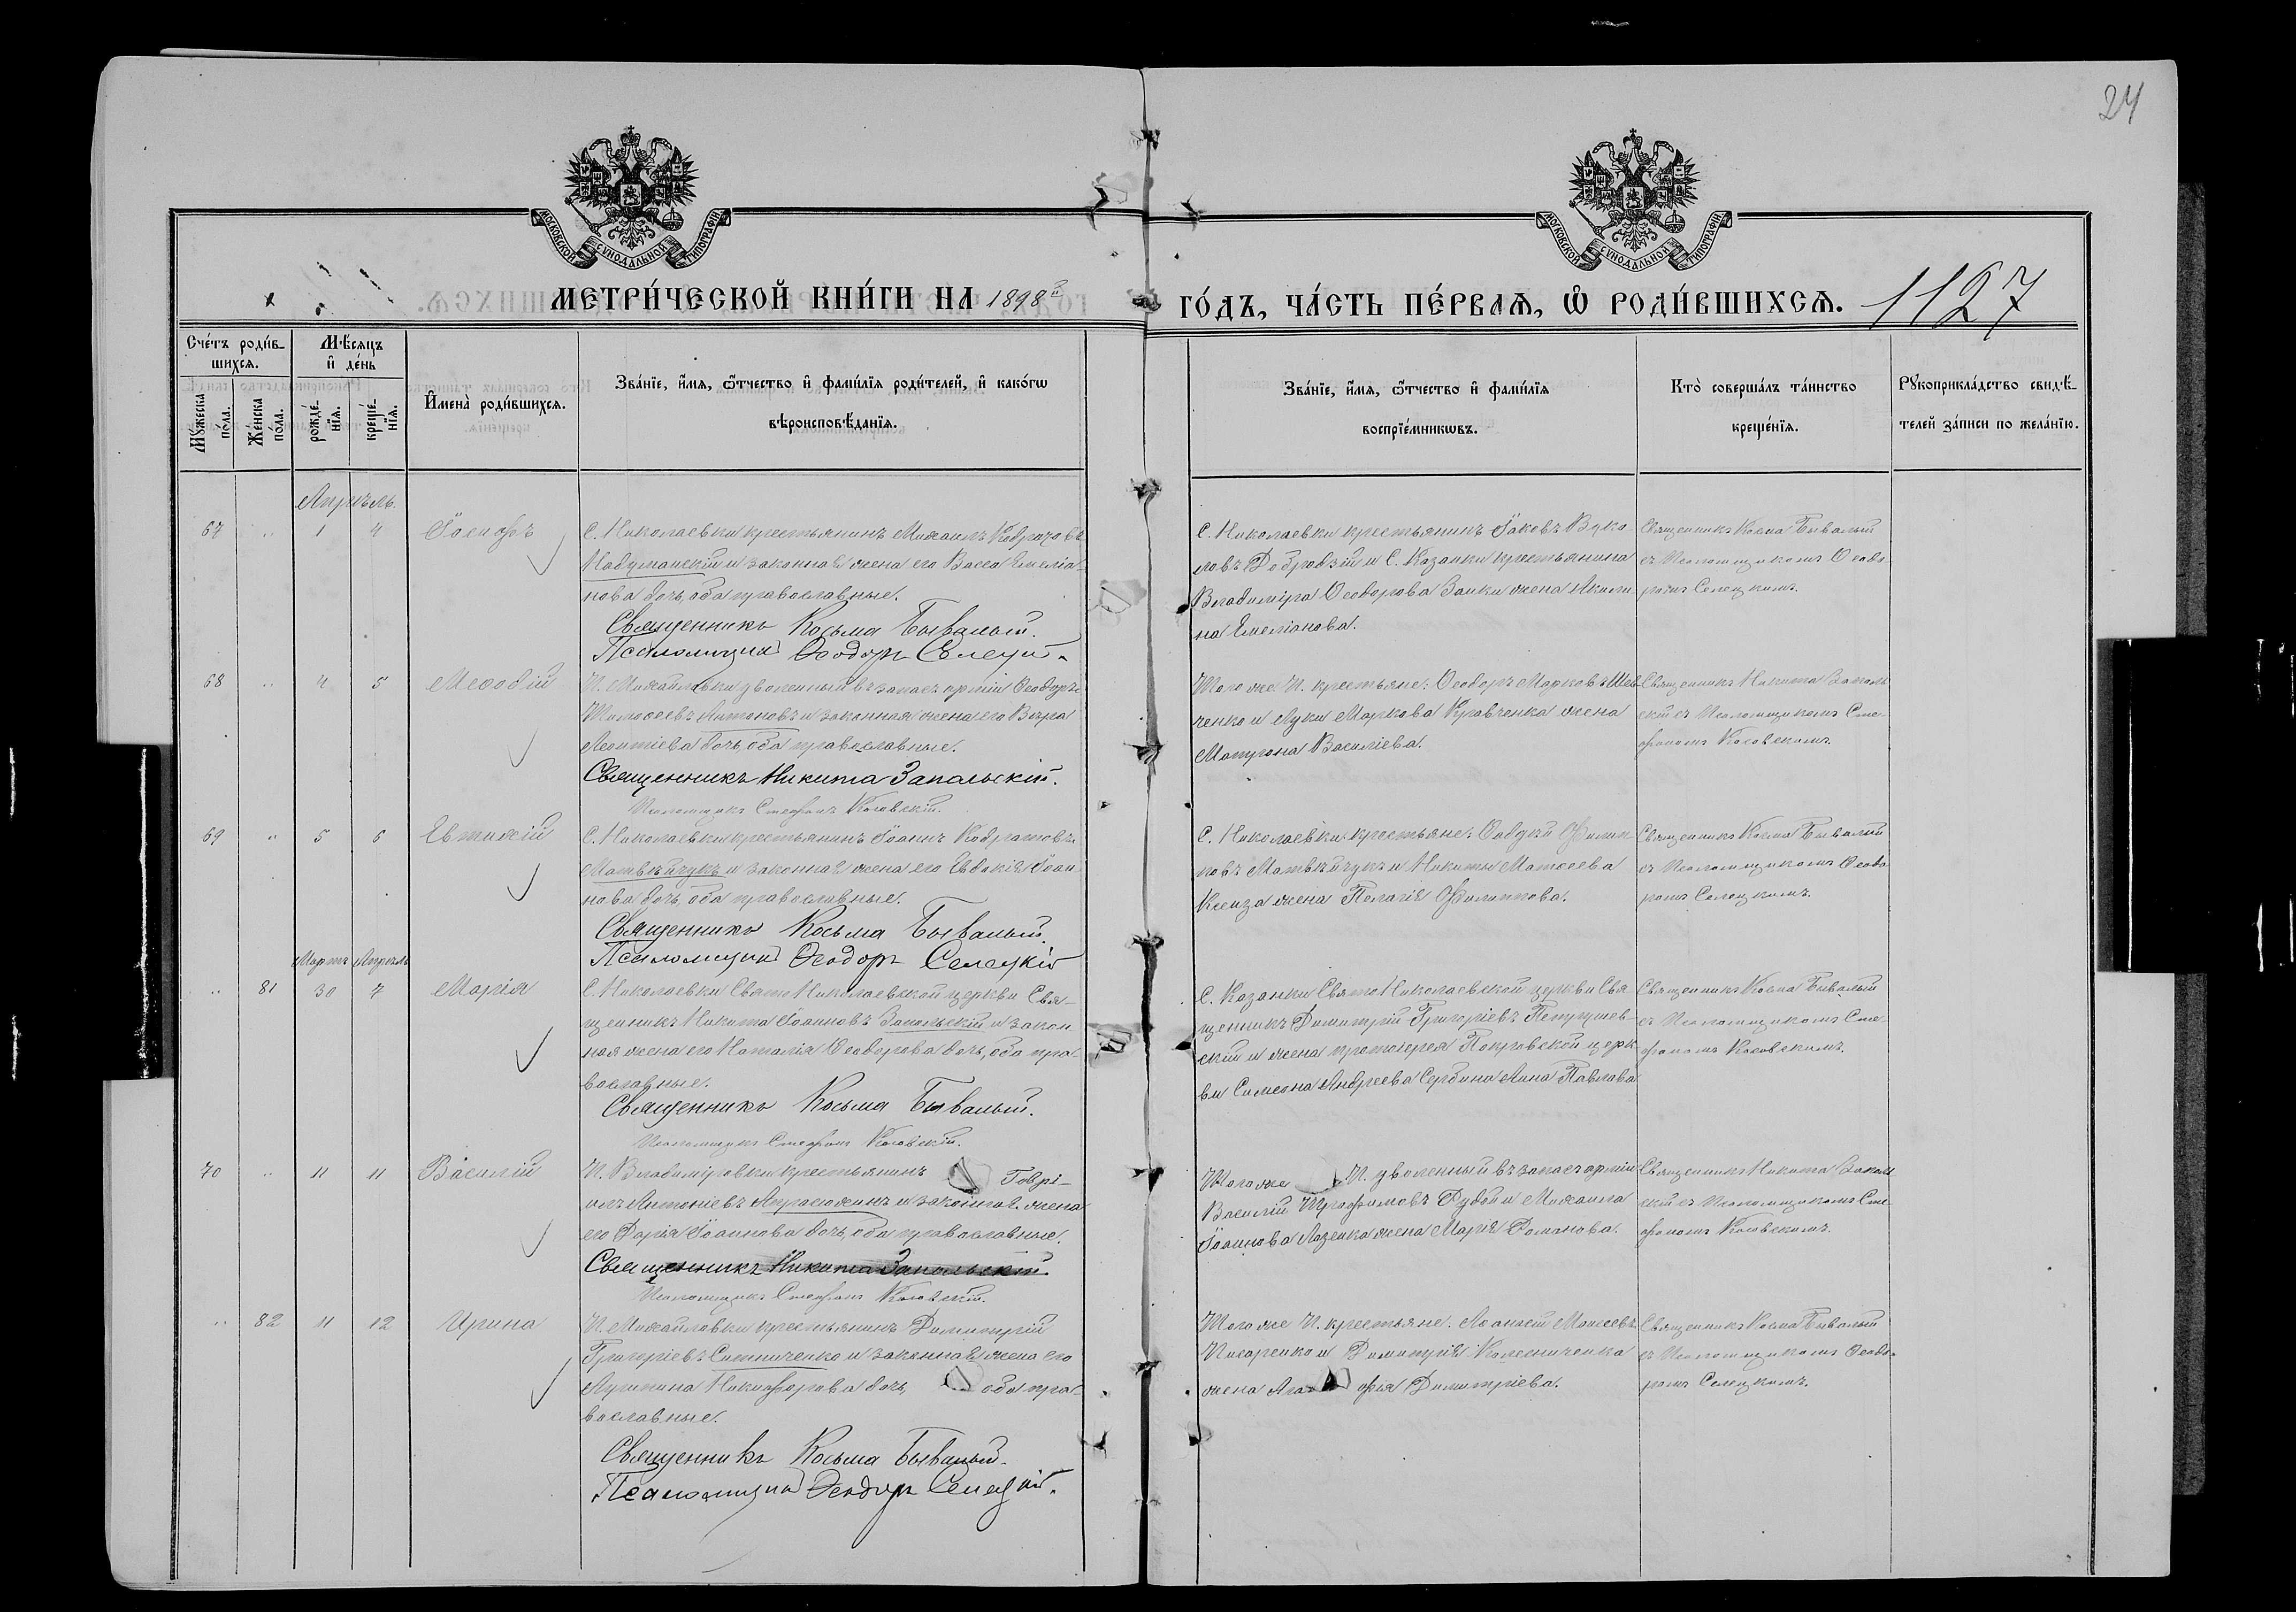 24
МОСКОВСКОЙ СѴНОДАЛЬНОЙ ТИПОГРАФІИ
МОСКОВСКОЙ СѴНОДАЛЬНОЙ ТИПОГРАФІИ
МЕТРИ́ЧЕСКОЙ КНИ́ГИ НА 1898й ГО́ДЪ, ЧА́СТЬ ПЕ́РВАѦ, Ѽ РОДИ́ВШИХСѦ. 1127
Сче́тъ роди́в-
шихсѧ.
Мꙋ́жеска по́ла.
Же́нска по́ла.
Мѣ́сяцъ и҆ де́нь
рожде́-нїѧ.
креще́-нїѧ.
И҆мена̀ роди́вшихсѧ.
Зва́нїе, и҆́мѧ, ѻ҆́тчество и҆ фами́лїѧ роди́телей, и҆ како́гѡ
вѣроисповѣ́данїѧ.
Зва́нїе, и҆́мѧ, ѻ҆́тчество и҆ фами́лїѧ
воспрїе́мникѡвъ.
Кто̀ соверша́лъ та́инство
креще́нїѧ.
Рꙋкоприкла́дство свидѣ́-
телей за́писи по жела́нїю.
Апрѣль
67 " 1 4 Іосифъ
С. Николаевки крестьянинъ Михаилъ Кодратовъ
и законная жена его Васса Емеліа-
нова дочь, оба православные.
Священникъ Косьма Бывалый.
Псаломщикъ Ѳеодоръ Селецкій.
С. Николаевки крестьянинъ Іаковъ Вуко-
ловъ и С. Казанки крестьянина
Владиміра Ѳеодорова Заики жена Акили-
на Емеліанова.
Священникъ Косма Бывалый
съ Псаломщикомъ Ѳеодо-
ромъ Селецкимъ.
68 " 4 5 Меѳодій
П. Михайловки уволенный въ запасъ арміи Ѳеодоръ
Тимоѳеевъ Антоновъ и законная жена его Вѣра
Леонтіева дочь, оба православные.
Священникъ Никита Запольскій.
Псаломщикъ Стефанъ Косовскій.
Того же П. крестьяне: Ѳеодоръ Марковъ Шев-
ченко и Луки Маркова Кравченка жена
Матрона Василіева.
Священникъ Никита Заполь-
скій съ Псаломщикомъ Сте-
фаномъ Косовскимъ.
69 " 5 6 Евтихій
С. Николаевки крестьянинъ Іоаннъ Кодратовъ
Матвѣйчукъ и законная жена его Евдокія Іоан-
нова дочь, оба православные.
Священникъ Косьма Бывалый.
Псаломщикъ Ѳеодоръ Селецкій
С. Николаевки крестьяне: Филип-
повъ Матвѣйчукъ и Никиты Матѳеева
жена Пелагія Филиппова.
Священникъ Косма Бывалый
съ Псаломщикомъ Ѳеодо-
ромъ Селецкимъ.
Мартъ Апрѣль
" 81 30 7 Марія
С. Николаевки Свято Николаевской церкви Свя-
щенникъ Никита Іоанновъ Запольскій и закон-
ная жена его Наталія Ѳеодорова дочь, оба пра-
вославные.
Священникъ Косьма Бывалый.
Псаломщикъ Стефанъ Косовскій.
С. Казанки Свято Николаевской церкви Свя-
щенникъ Димитрій Григоріевъ Петрушев-
скій и жена протоіерея Покровской церк-
ви Симеона Андреева Сербина Анна Павлова
Священникъ Косма Бывалый
съ Псаломщикомъ Сте-
фаномъ Косовскимъ.
70 " 11 11 Василій
П. Владиміровки крестьянинъ Гаврі-
илъ Антоніевъ и законная жена
его Дарія Іоаннова дочь, оба православные.
Священникъ Никита Запольскій.
Псаломщикъ Стефанъ Косовскій.
Того же П. уволенный въ запасъ арміи
Василій Трофимовъ Рудой и Михаила
Іоаннова Лазенка жена Марія Романова.
Священникъ Никита Заполь-
скій съ Псаломщикомъ Сте-
фаномъ Косовскимъ.
" 82 11 12 Ирина
П. Михайловки крестьянинъ Димитрій
Григоріевъ Ситниченко и законная жена его
Никифорова дочь, оба пра-
вославные.
Священникъ Косьма Бывалый.
Псаломщикъ Ѳеодоръ Селецкій.
Того же П. крестьяне: Моисеевъ
Писаренко и Димитрія Колесниченка
жена Ага фія Димитріева.
Священникъ Косма Бывалый
съ Псаломщикомъ Ѳеодо-
ромъ Селецкимъ.